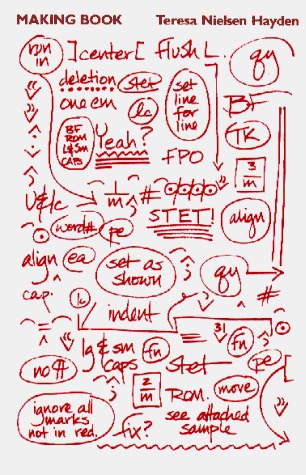 MAKING BOOK Teresa Nielsen Hayden
run in
]center[ flush L.
qy
deletion stet
set line for line
one em lc
BF
BF ROM L&SM CAPS
Yeah?
TK
FPO
3/m
u&lc
1/m #
STET!
align
word# pe
align ea
set as shown
qy
cap.
lc
indent
#
=
31
lg & sm caps
fn
fn
no ¶
stet
pe
2/m
ROM. move
ignore all marks not in red.
fix?
see attached sample